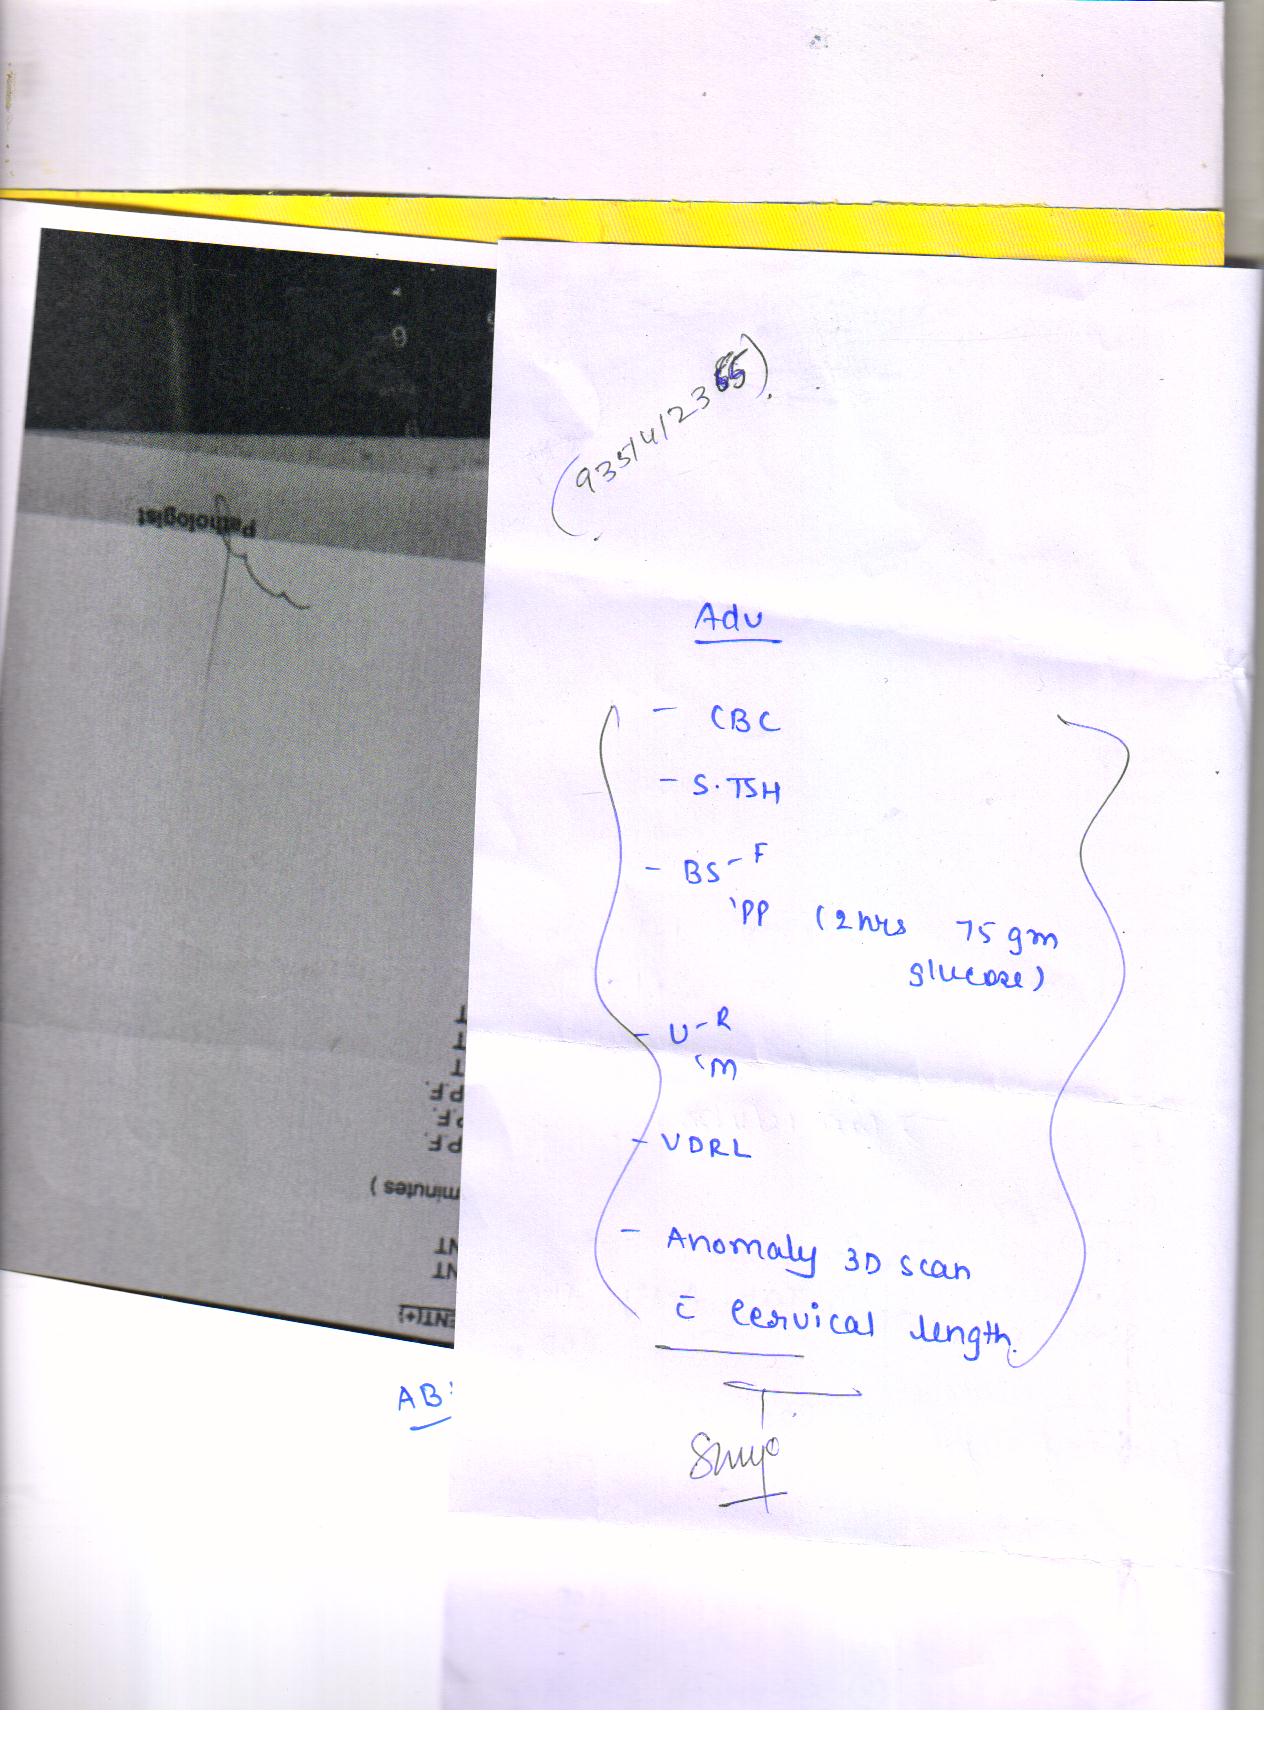 9
(9351412365)
Pathologist
Adv
- CBC
- S.TSH
- BS - F
PP (2 hrs 75 gm
glucose)
- U - R
M
- VDRL
- Anomaly 3D scan
c̄ Cervical length.
P.F.
P.F.
minutes )
AB